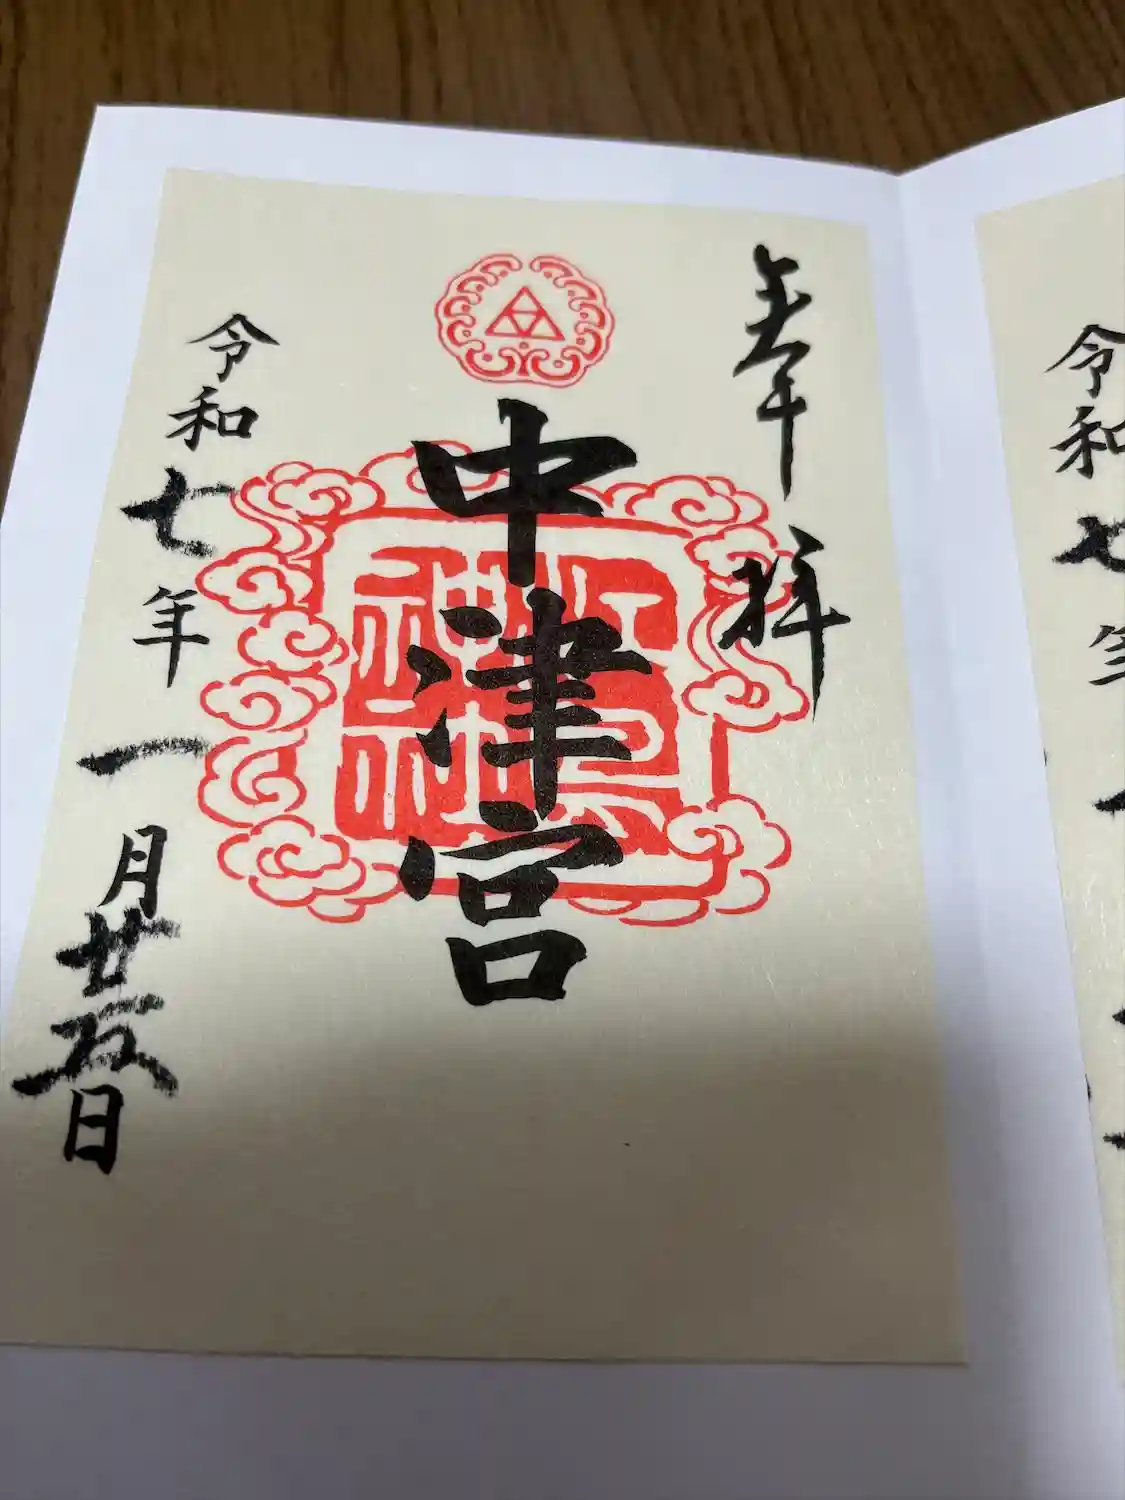 奉拝
中津宮
令和七年一月廿五日
令和七年一